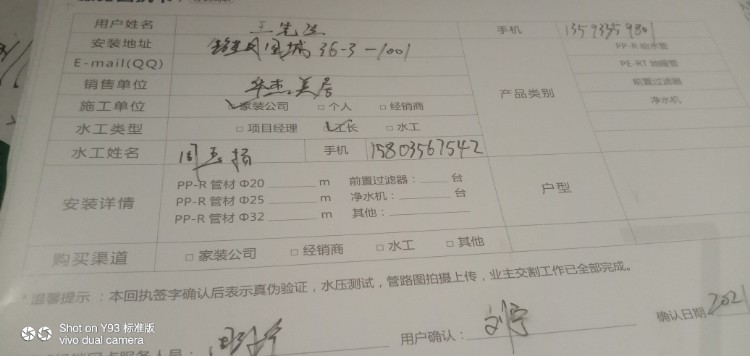 用户姓名 王先生 手机
安装地址 36-3-1001 PP-R 给水管
E-mail(QQ) PE-RT 地暖管
销售单位 华杰美居 产品类别 前置过滤器
施工单位 ✓家装公司 □个人 □经销商 净水机
水工类型 □项目经理 ✓工长 □水工
水工姓名 手机 15803567542
安装详情 PP-R 管材 Φ20 ____ m 前置过滤器：____ 台 户型
PP-R 管材 Φ25 ____ m 净水机：____ 台
PP-R 管材 Φ32 ____ m 其他：____
购买渠道 □家装公司 □经销商 □水工 □其他
*温馨提示：本回执签字确认后表示真伪验证，水压测试，管路图拍摄上传，业主交割工作已全部完成。
服务人员： 用户确认：刘宁 确认日期 2021
Shot on Y93 标准版
vivo dual camera